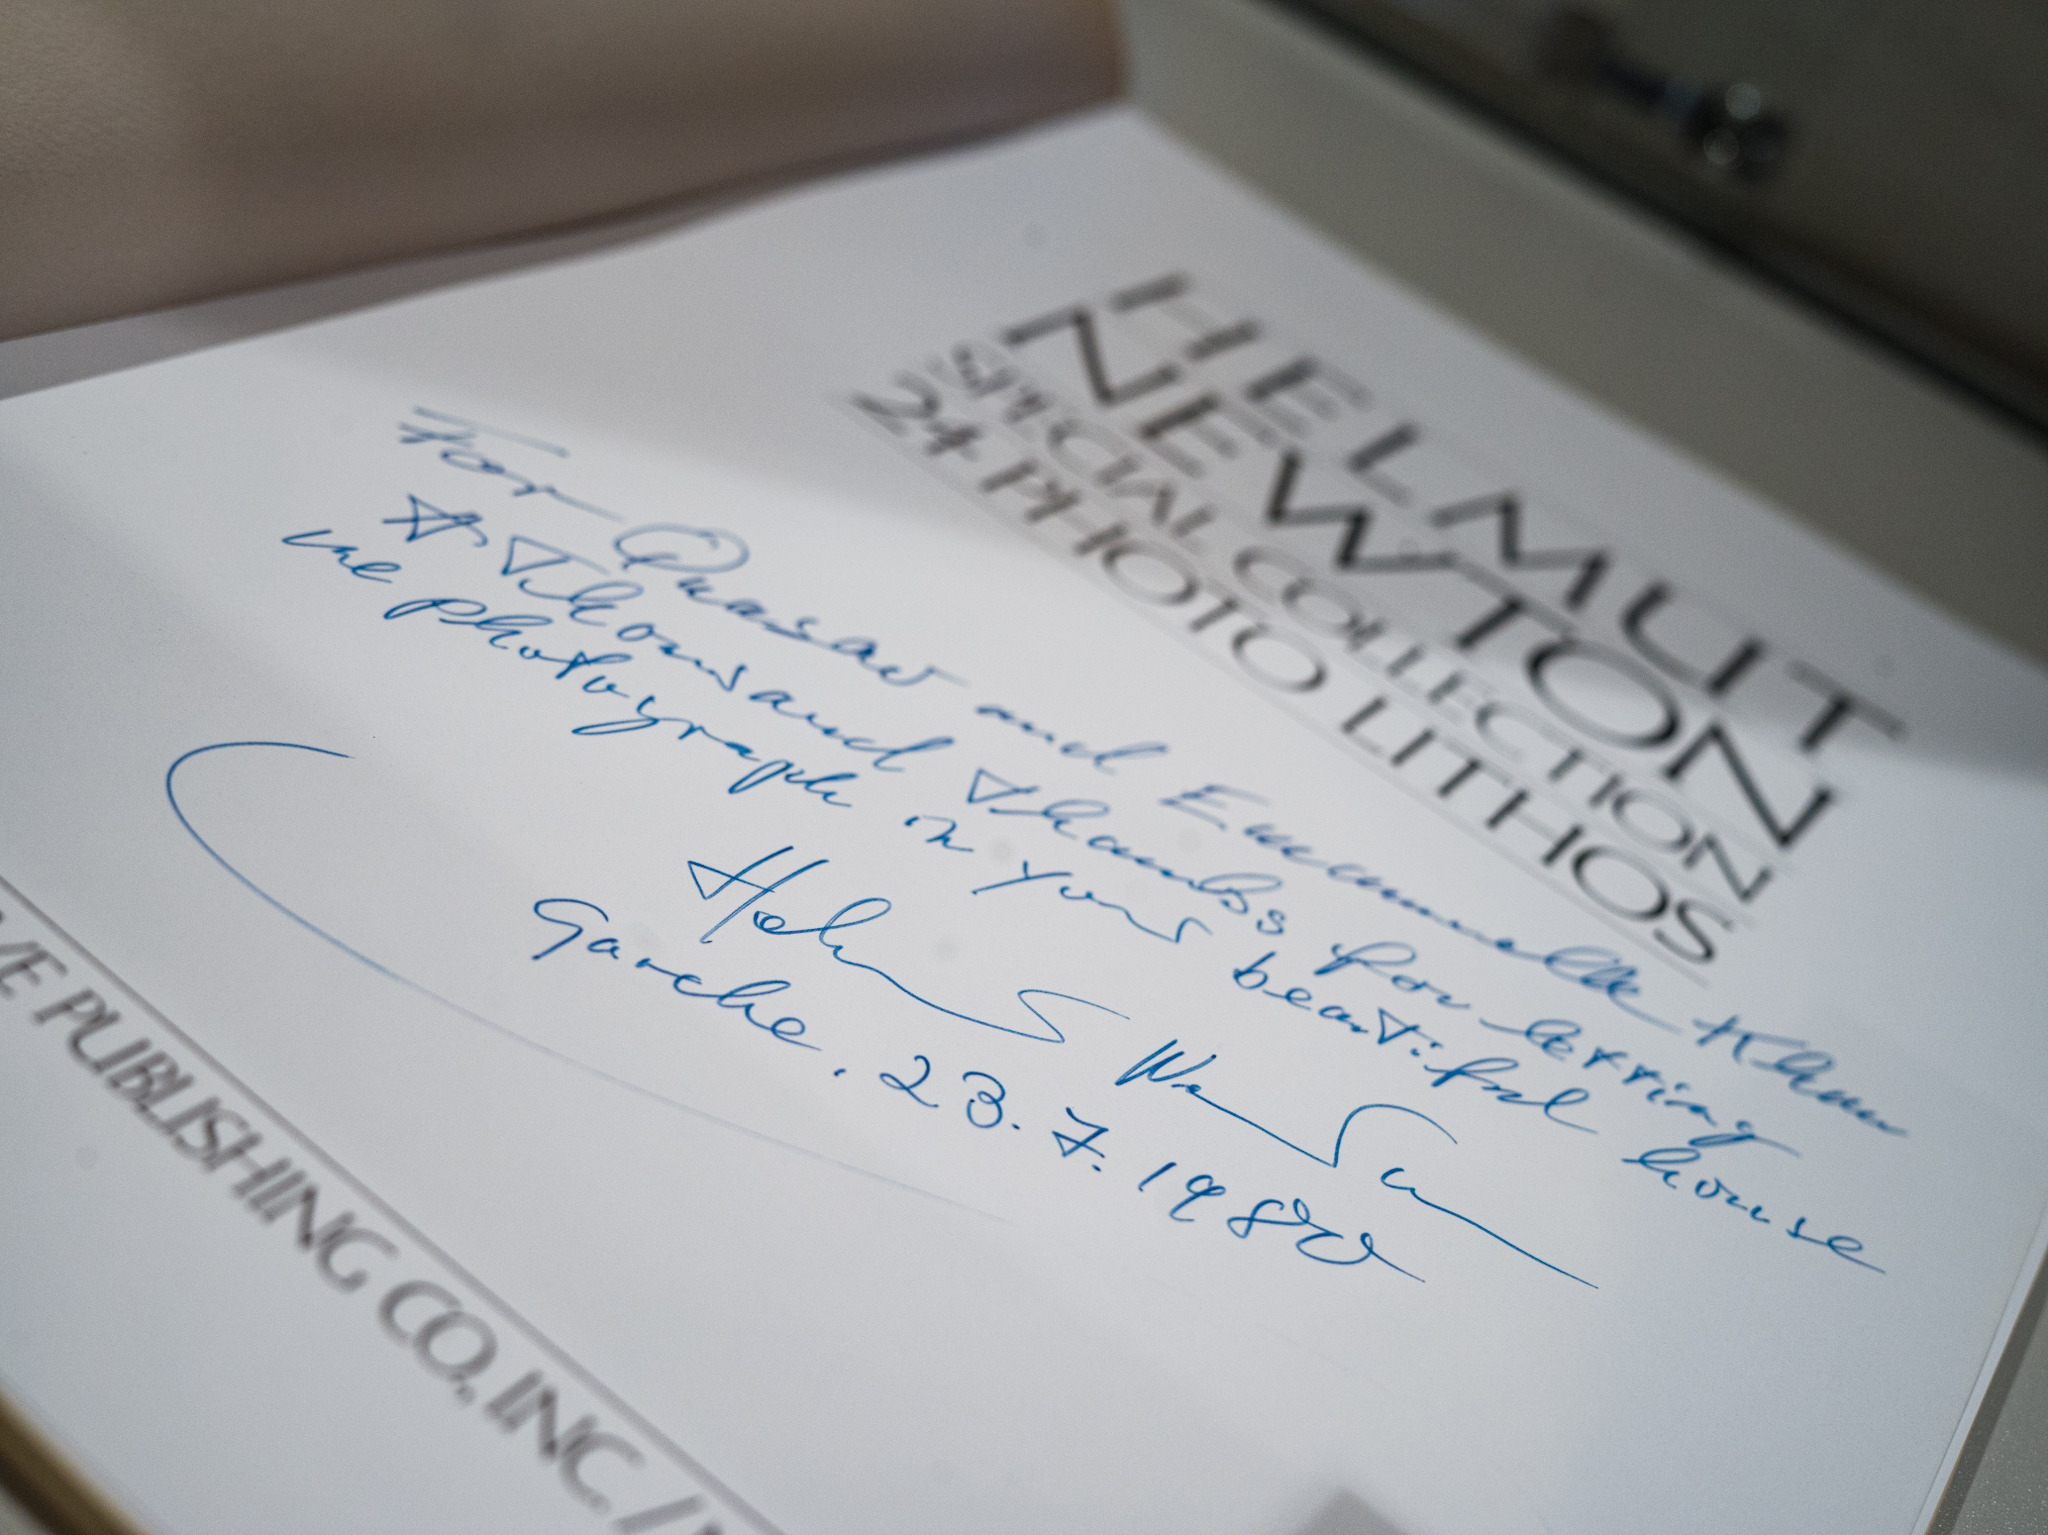 HELMUT
NEWTON
SPECIAL COLLECTION
24 PHOTO LITHOS
For Quasar and Emmanuelle Khan
A Thousand thanks for letting
me photograph in your beautiful house
Helmut Newton
Garche, 23.7.1980
PUBLISHING CO., INC. /